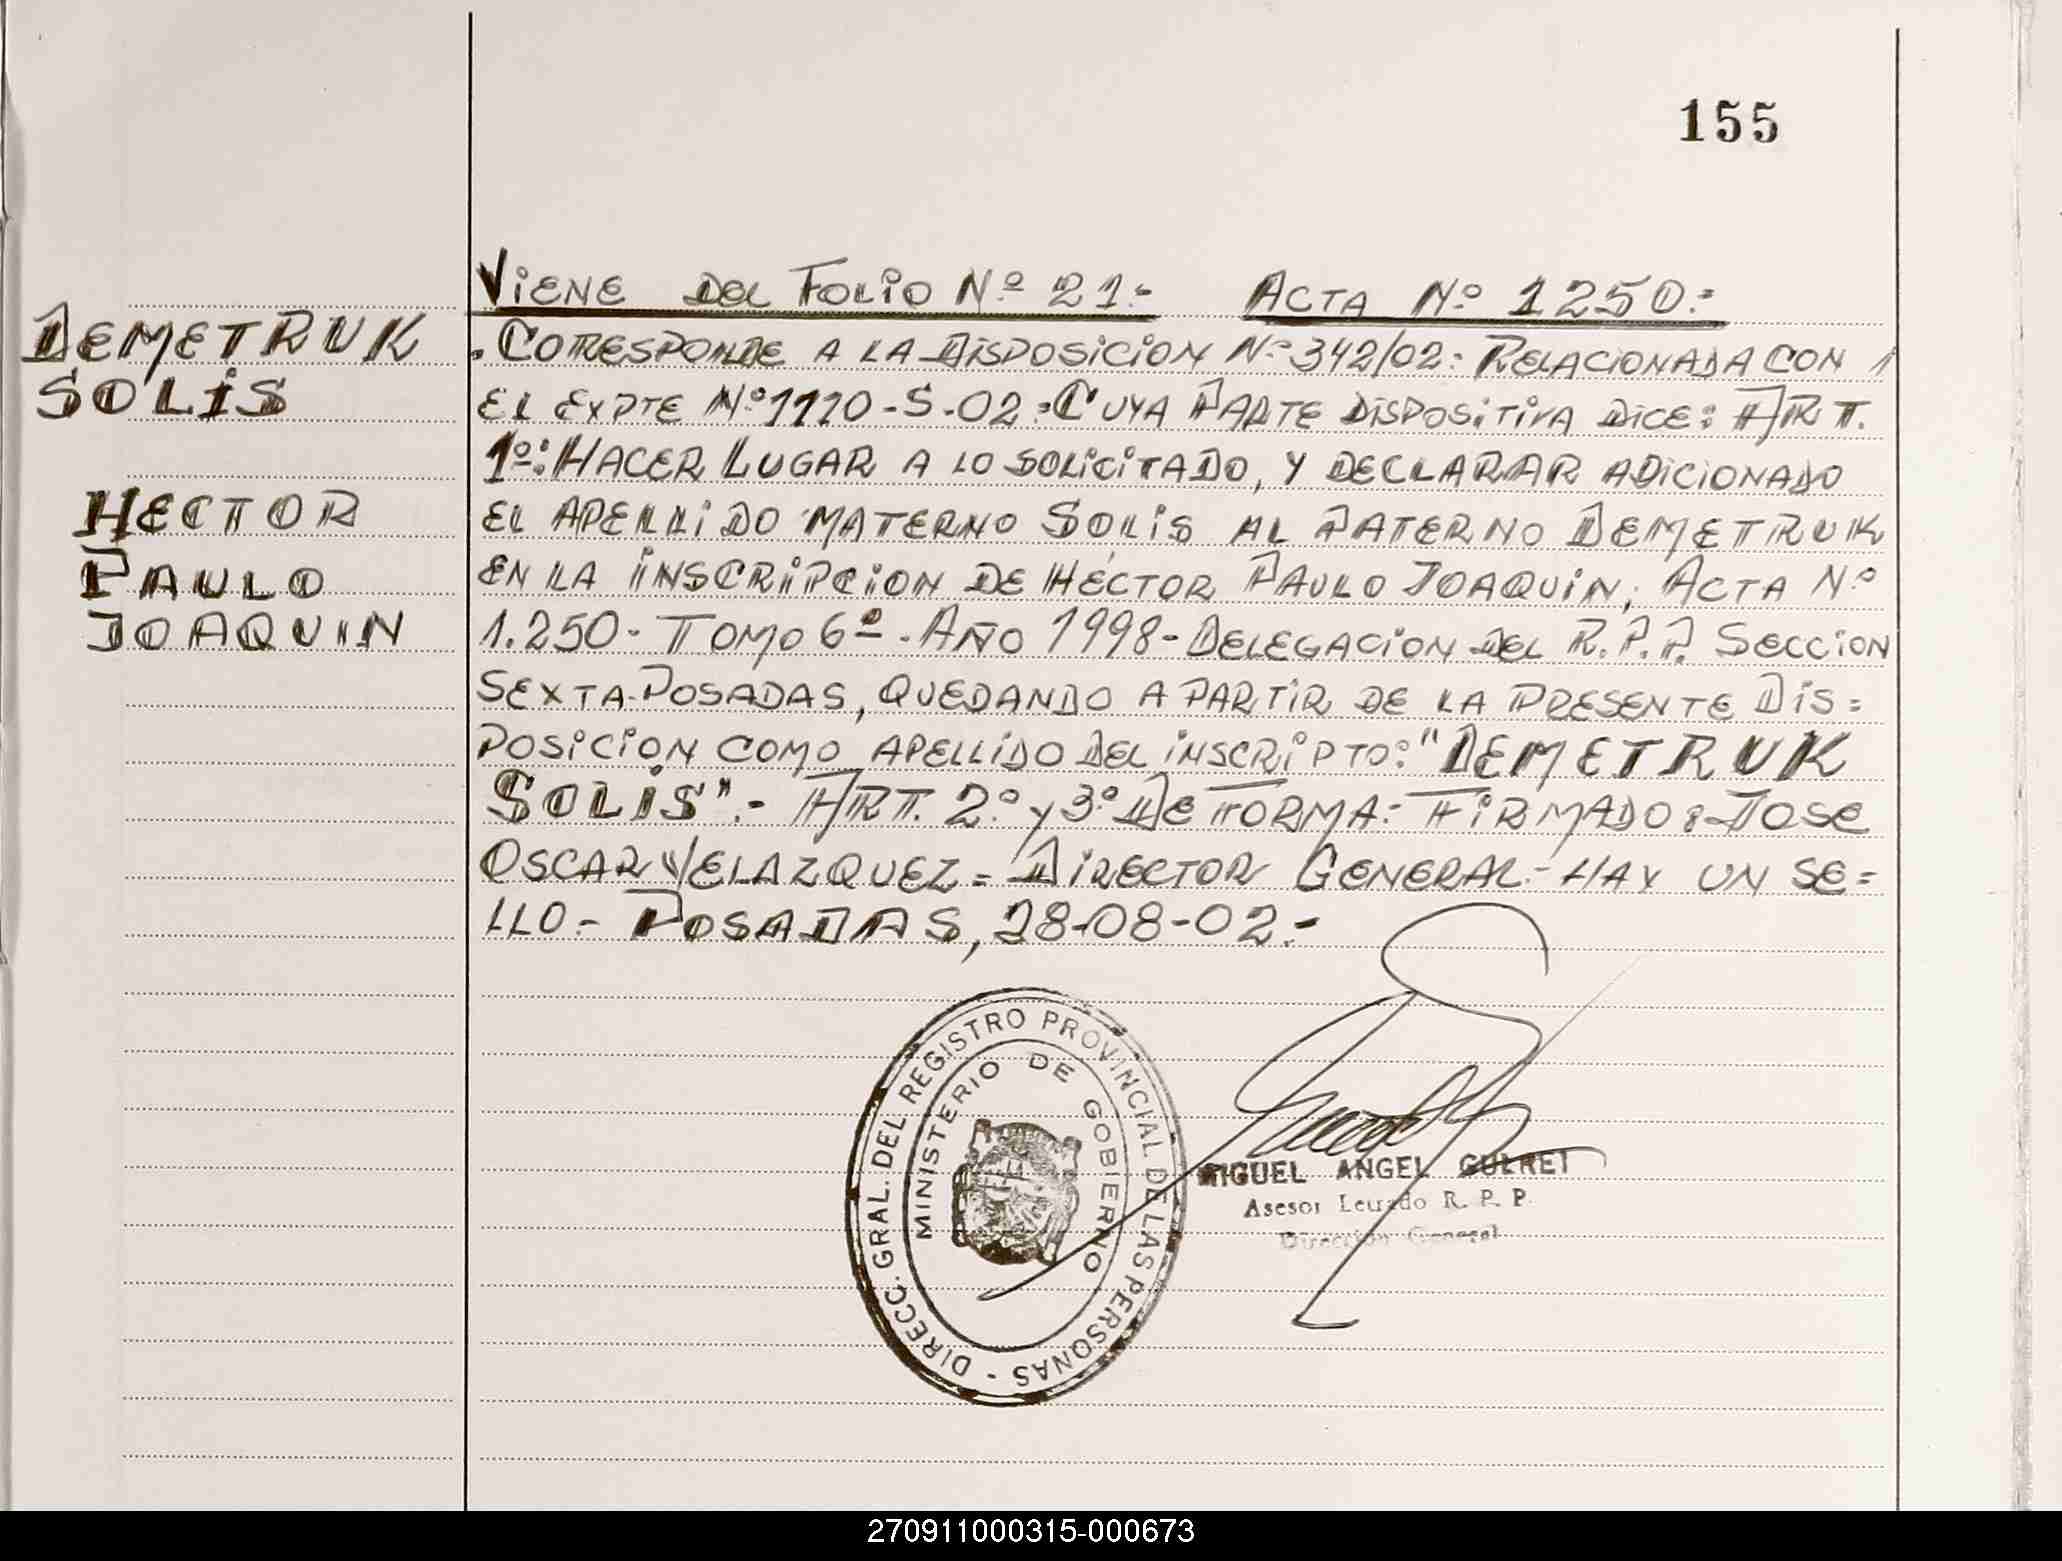 155
VIENE DEL FOLIO Nº 21.- ACTA Nº 1250.-
DEMETRUK
SOLIS
HECTOR
PAULO
JOAQUIN
.CORRESPONDE A LA DISPOSICION Nº 342/02: RELACIONADA CON
EL EXPTE Nº 1110-S-02.CUYA PARTE DISPOSITIVA DICE: ART.
1º: HACER LUGAR A LO SOLICITADO, Y DECLARAR ADICIONADO
EL APELLIDO MATERNO SOLIS AL PATERNO DEMETRUK
EN LA INSCRIPCION DE HÉCTOR PAULO JOAQUIN, ACTA Nº
1.250- TOMO 6º - AÑO 1998- DELEGACION DEL R.P.P. SECCION
SEXTA-POSADAS, QUEDANDO A PARTIR DE LA PRESENTE DIS=
POSICION COMO APELLIDO DEL INSCRIPTO: "DEMETRUK
SOLIS".- ART. 2º y 3º DE FORMA.- FIRMADO: JOSE
OSCAR VELAZQUEZ= DIRECTOR GENERAL.- HAY UN SE=
LLO.- POSADAS, 28-08-02.-
DIRECC. GRAL. DEL REGISTRO PROVINCIAL DE LAS PERSONAS -
MINISTERIO DE GOBIERNO
MIGUEL ANGEL GUERET
Asesor Letrado R. P. P.
Dirección General
270911000315-000673